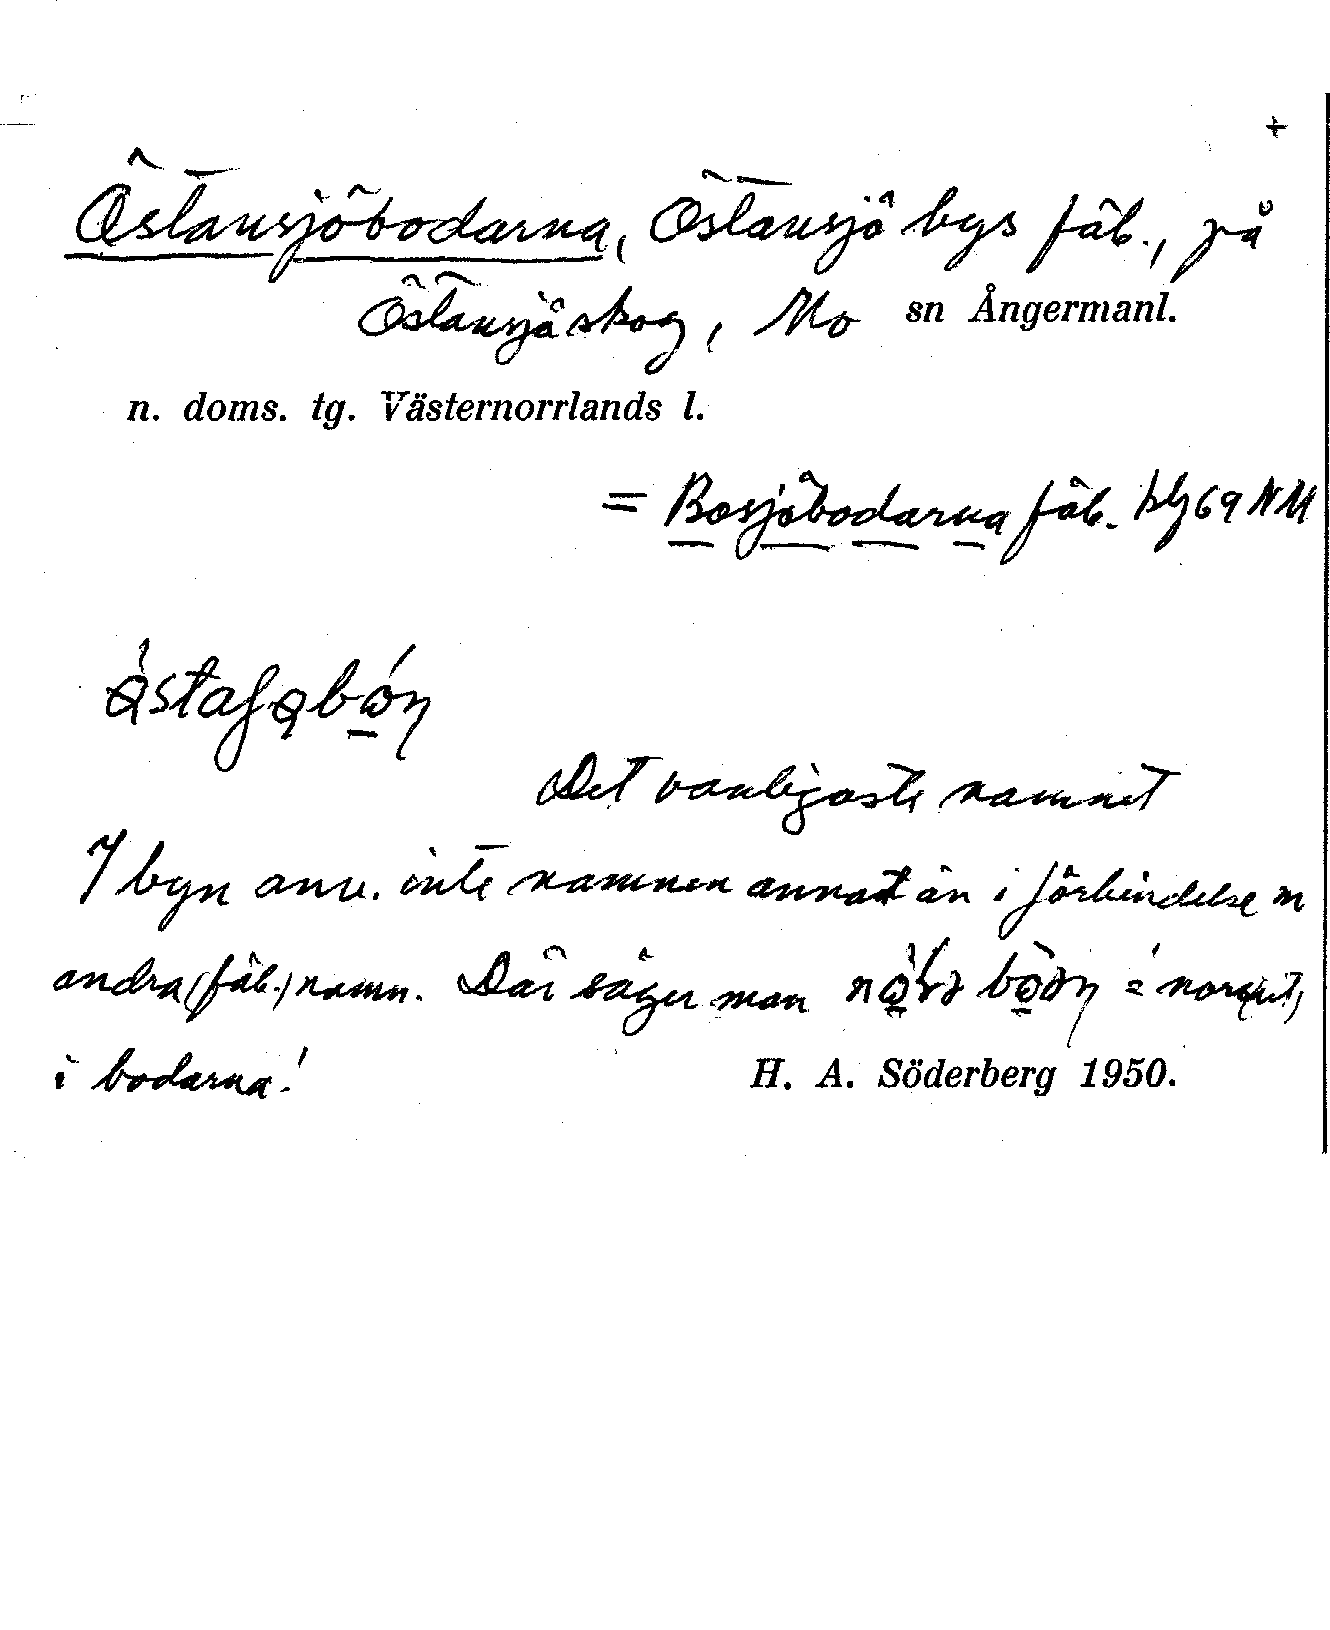 +
Östansjöbodarna, Östansjö bys fäb., på
Östansjöskog, Mo sn Ångermanl.
n. doms. tg. Västernorrlands l.
= Bosjöbodarna fäb. blg 69 NM
Det vanligaste namnet
I byn anv. inte namnen annat än i förbindelse m
andra (fäb.) namn. Där säger man
i bodarna!
H. A. Söderberg 1950.